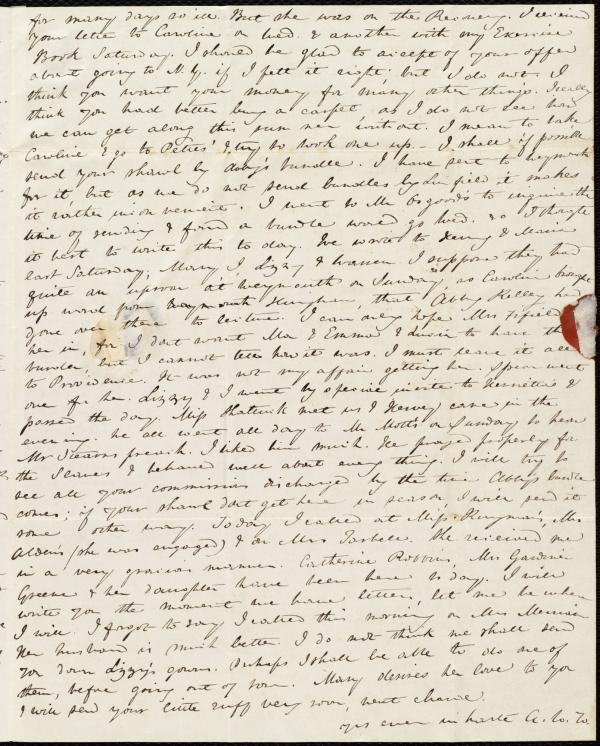 for many days so ill. But she was on the Recovery. I received
your letter to Caroline on Wed. & another with my Exercise
Book Saturday. I should be glad to accept of your offer
about going to N.Y. if I felt it right; but I do not. I
think you want your money for many other things. Really
think you had better buy a carpet, as I do not see how
we can get along this summer without. I mean to take
Caroline & go to Pettes' & try to look one up. I shall if possible
send your shawl by Abby's bundle. I have sent to Weymouth
for it, but as we do not send bundles by Linfield it makes
it rather inconvenient. I went to Mr Osgood's to inquire the
time of sending & found a bundle would go Wed. so I thought
it best to write this to day. I've wrote to Henry & Maria
last Saturday; Mary, I, Lizzy & Warren. I suppose they had
quite an uproar at Weymouth on Sunday, as Caroline brought
up word from Hingham, that Abby Kelley had
gone over there to lecture. I can only hope Mrs Fifield
her in, for I dont want Ma & Emma & Louisa to have the
burden, but I cannot tell how it was. I must leave it all
to Providence. It was not my affair getting her. I spoke went
one for her. Lizzy & I went by special invite to Henrietta's &
passed the day. Miss Shattuck met us & Hervey came in the
evening. We all went all day to Mr Motte's on Sunday to hear
Mr Stearns preach. I liked him much. He prayed properly for
the Slaves & behaved well about every thing. I will try to
see all your commissions discharged by the time Abby's bundle
comes; if your shawl dont get here in season I will send it
some other way. Today I called at Miss Hinyman's, Mrs
Alden's (she was engaged) & on Mrs Tarbell. She received me
in a very gracious manner. Catherine Robbins, Mrs Gardiner
Greene & her daughter have been here to day. I will
write you the moment we have letters, let me be where
I will. I forgot to say I called this morning on Mrs Merriam
Her husband is much better. I do not think we shall send
you down Lizzy's gowns. Perhaps I shall be able to do one of
them, before going out of town. Mary desires her love to you
I will send your little ruff very soon, next chance.
yrs ever in haste A. W. W.